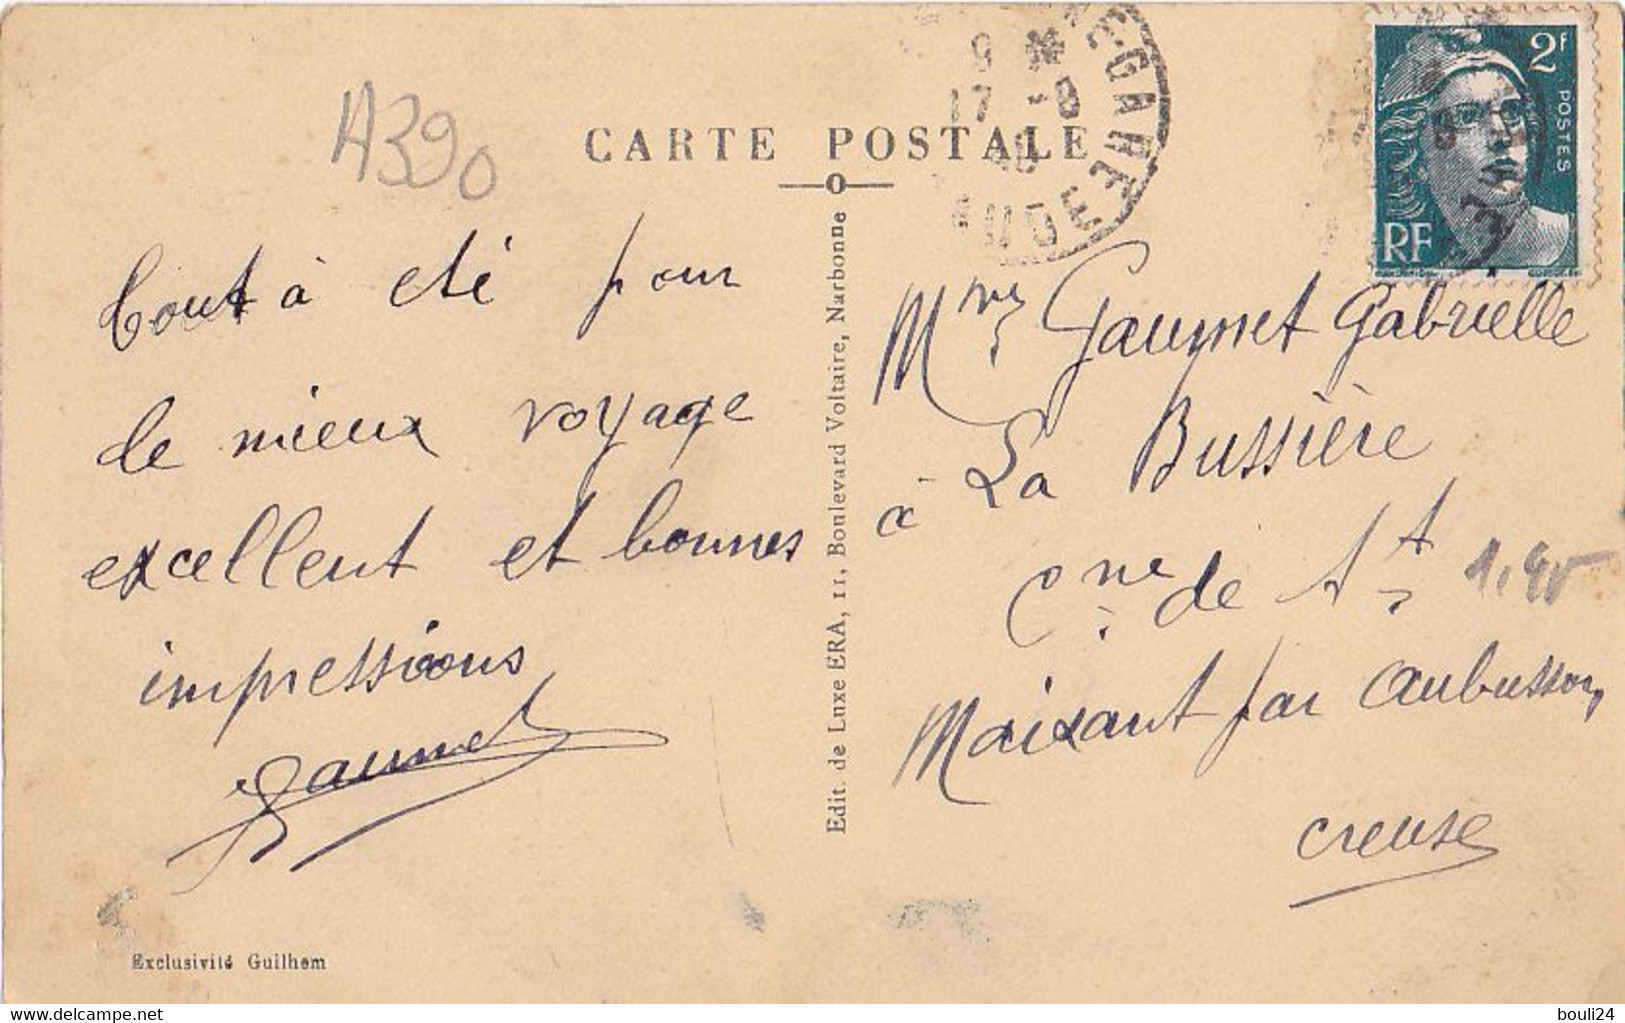 A390
CARTE POSTALE
9 *
17 -8
GARE
AUDE
2F
POSTES
RF
Tout à été pour
le mieux voyage
excellent et bonnes
impressions
Gaumet
Exclusivité Guilhem
Edit. de Luxe ERA, 11, Boulevard Voltaire, Narbonne
Mme Gaumet Gabrielle
à La Bussière
Cne de St
Maixant par Aubusson
Creuse
bouli24